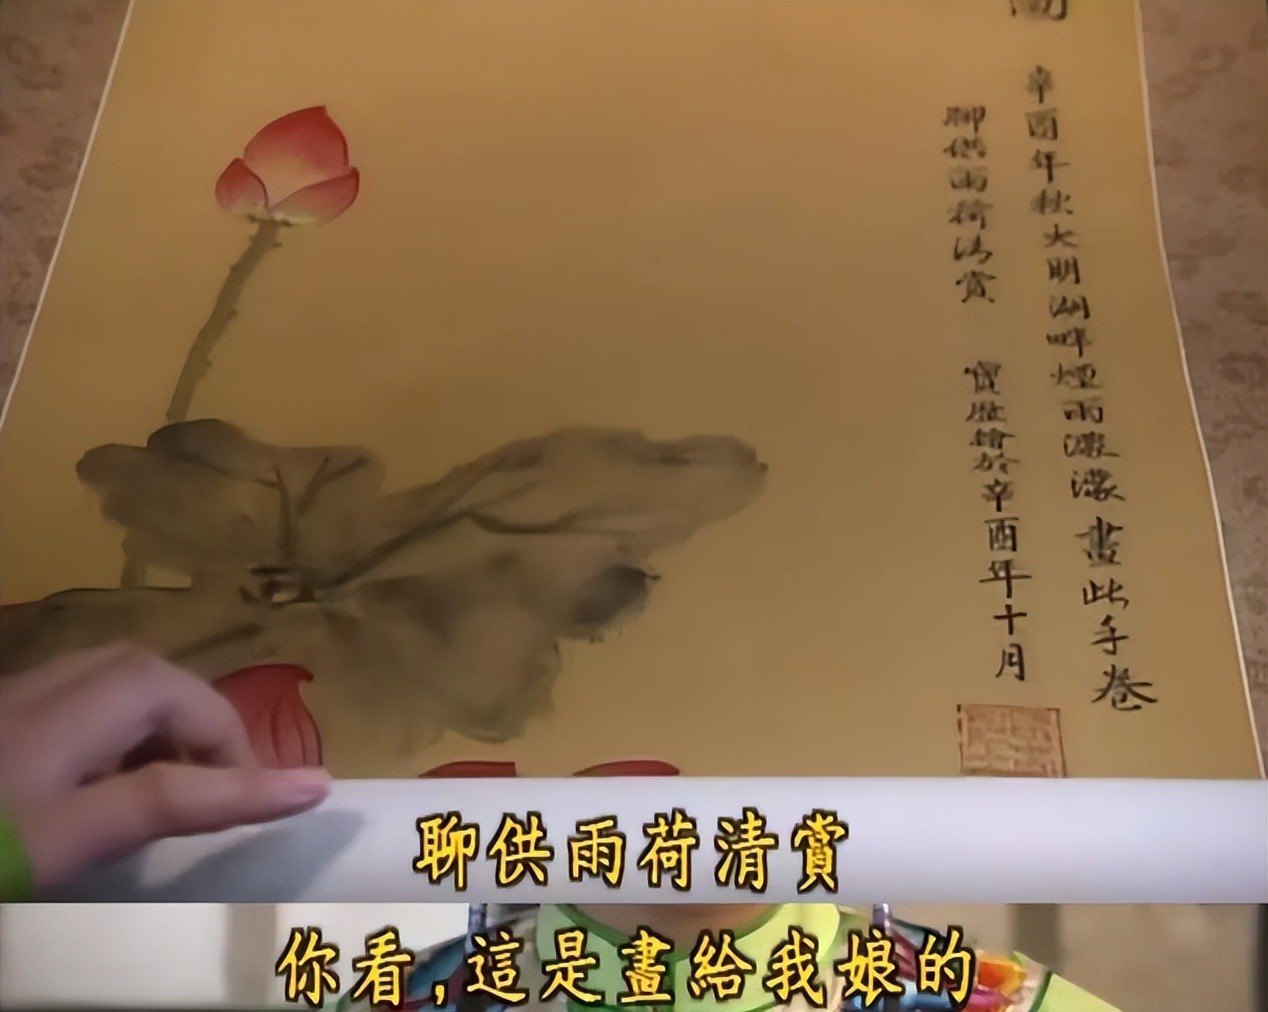 圖
辛酉年秋大明湖畔煙雨濛濛畫此手卷
聊供雨荷清賞
寶歷繪於辛酉年十月
聊供雨荷清賞
你看,這是畫給我娘的